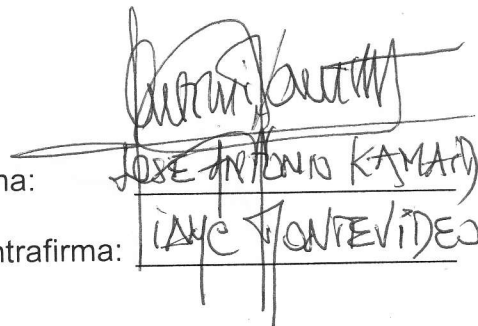 na: JOSE ANTONIO KAMAID
ntrafirma: IAYC MONTEVIDEO